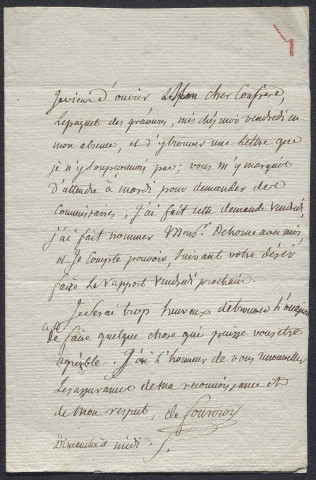 Je viens d'ouvrir Mon cher Confrere,
le paquet des gravures, mis chés moi vendredi en
mon absence, et d'y trouver une lettre que
je n'y soupconnois pas; vous m'y marquiés
d'attendre à mardi pour demander des
commissaires; j'ai fait cette demande vendredi,
j'ai fait nommer Mrs. Dehorne aux mis,
et je compte pouvoir suivant votre desir
faire le rapport vendredi prochain.
Je serai trop heureux de trouver l'occasion
de faire quelque chose qui puisse vous etre
agréable. J'ai l'honneur de vous renouveller
les assurances de ma reconnoissance et
de mon respect, de Fourcroy
Dimanche à midi.